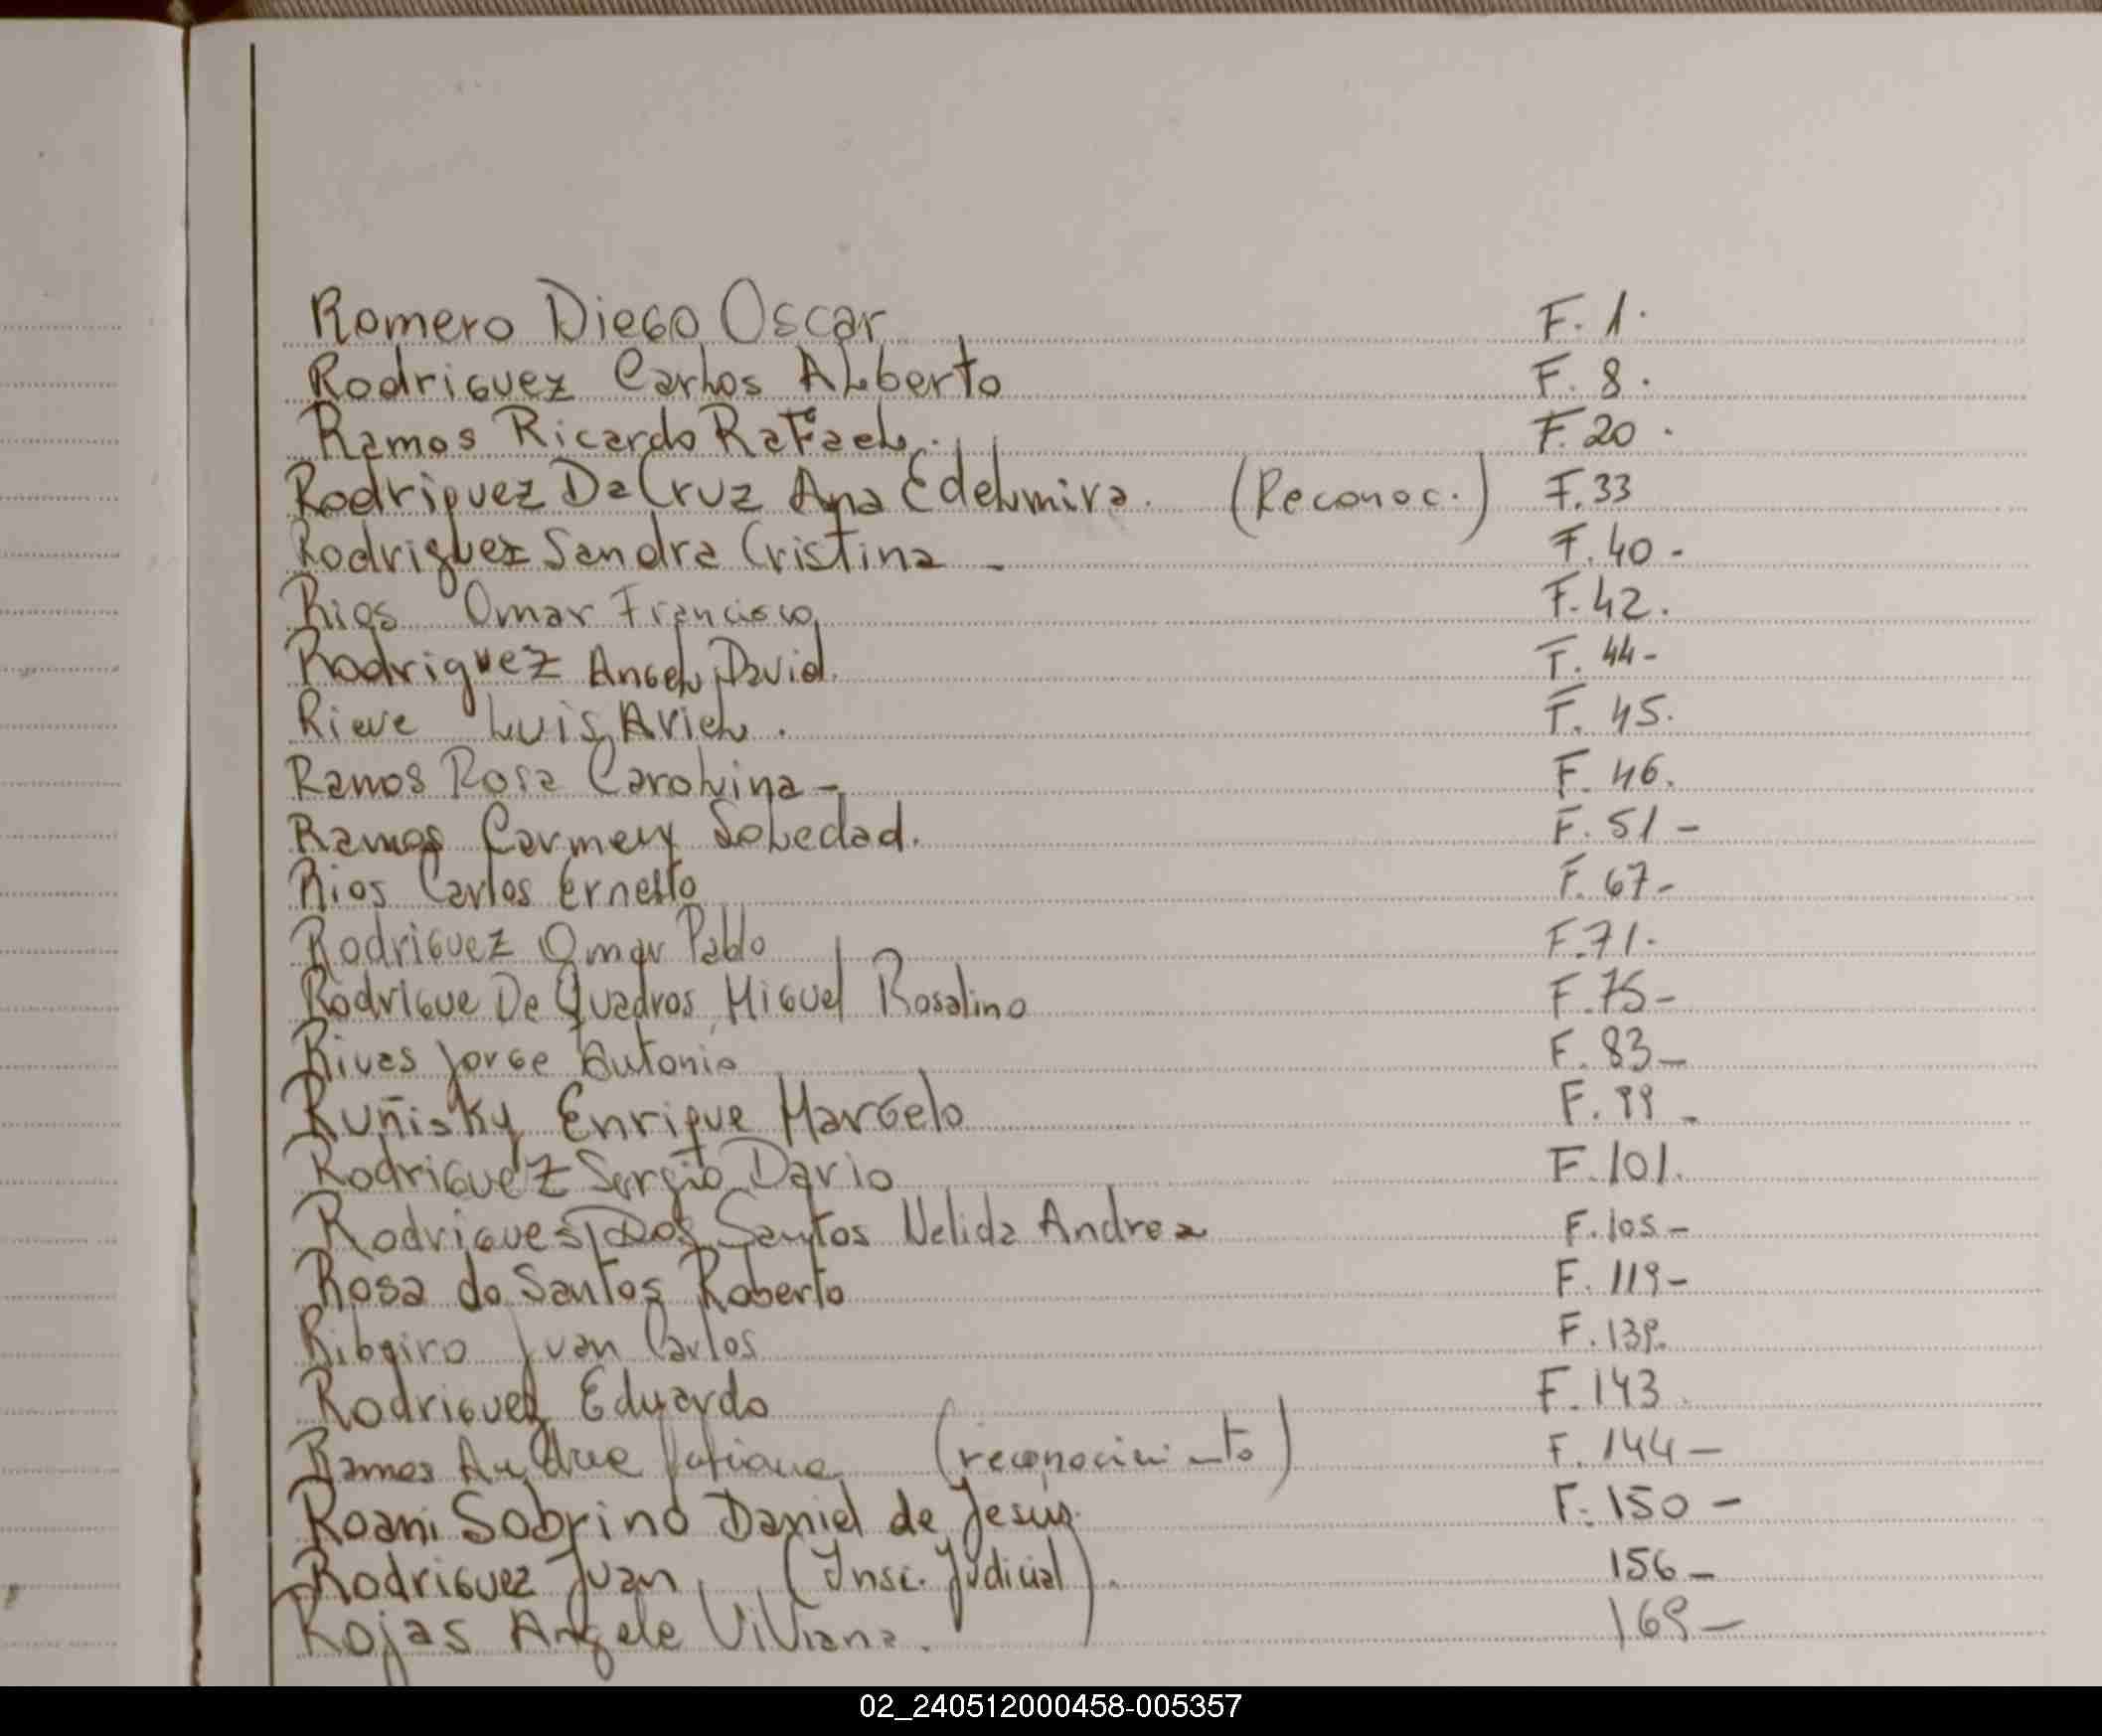 Romero Diego Oscar F. 1.
Rodriguez Carlos Alberto F. 8.
Ramos Ricardo Rafael. F. 20.
Rodriguez Da Cruz Ana Edelmira. (Reconoc.) F. 33
Rodriguez Sandra Cristina - F. 40-
Rios Omar Francisco F. 42.
Rodriguez Angel David. F. 44-
Luis Ariel. F. 45.
Ramos Rosa Carolina - F. 46.
Ramos Carmen Soledad. F. 51-
Rios Carlos Ernesto F. 67-
Rodriguez Omar Pablo F. 71.
Rodrigue De Quadros, Miguel Rosalino F. 75-
Jorge Antonio F. 83-
Ruñisky Enrique Marcelo F. 99-
Rodriguez Sergio Dario F. 101.
Rodrigues Dos Santos Nelida Andrea F. 105-
Rosa do Santos Roberto F. 119-
Ribeiro Juan Carlos F. 139.
Rodriguez Eduardo F. 143.
Ramos Tatiana (reconocimiento) F. 144-
Roani Sobrino Daniel de Jesús. F. 150-
Rodriguez Juan. (Insc. Judicial). 156-
Rojas Angela Viviana. 169-
02_240512000458-005357